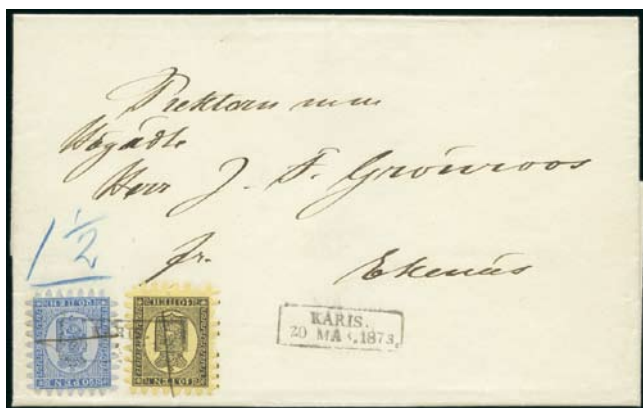 Rektorn m.m.
Högädle
Herr J. F. Grönroos
fr. Ekenäs
1 1/2
20 PEN
KARIS.
20 MA .1873.